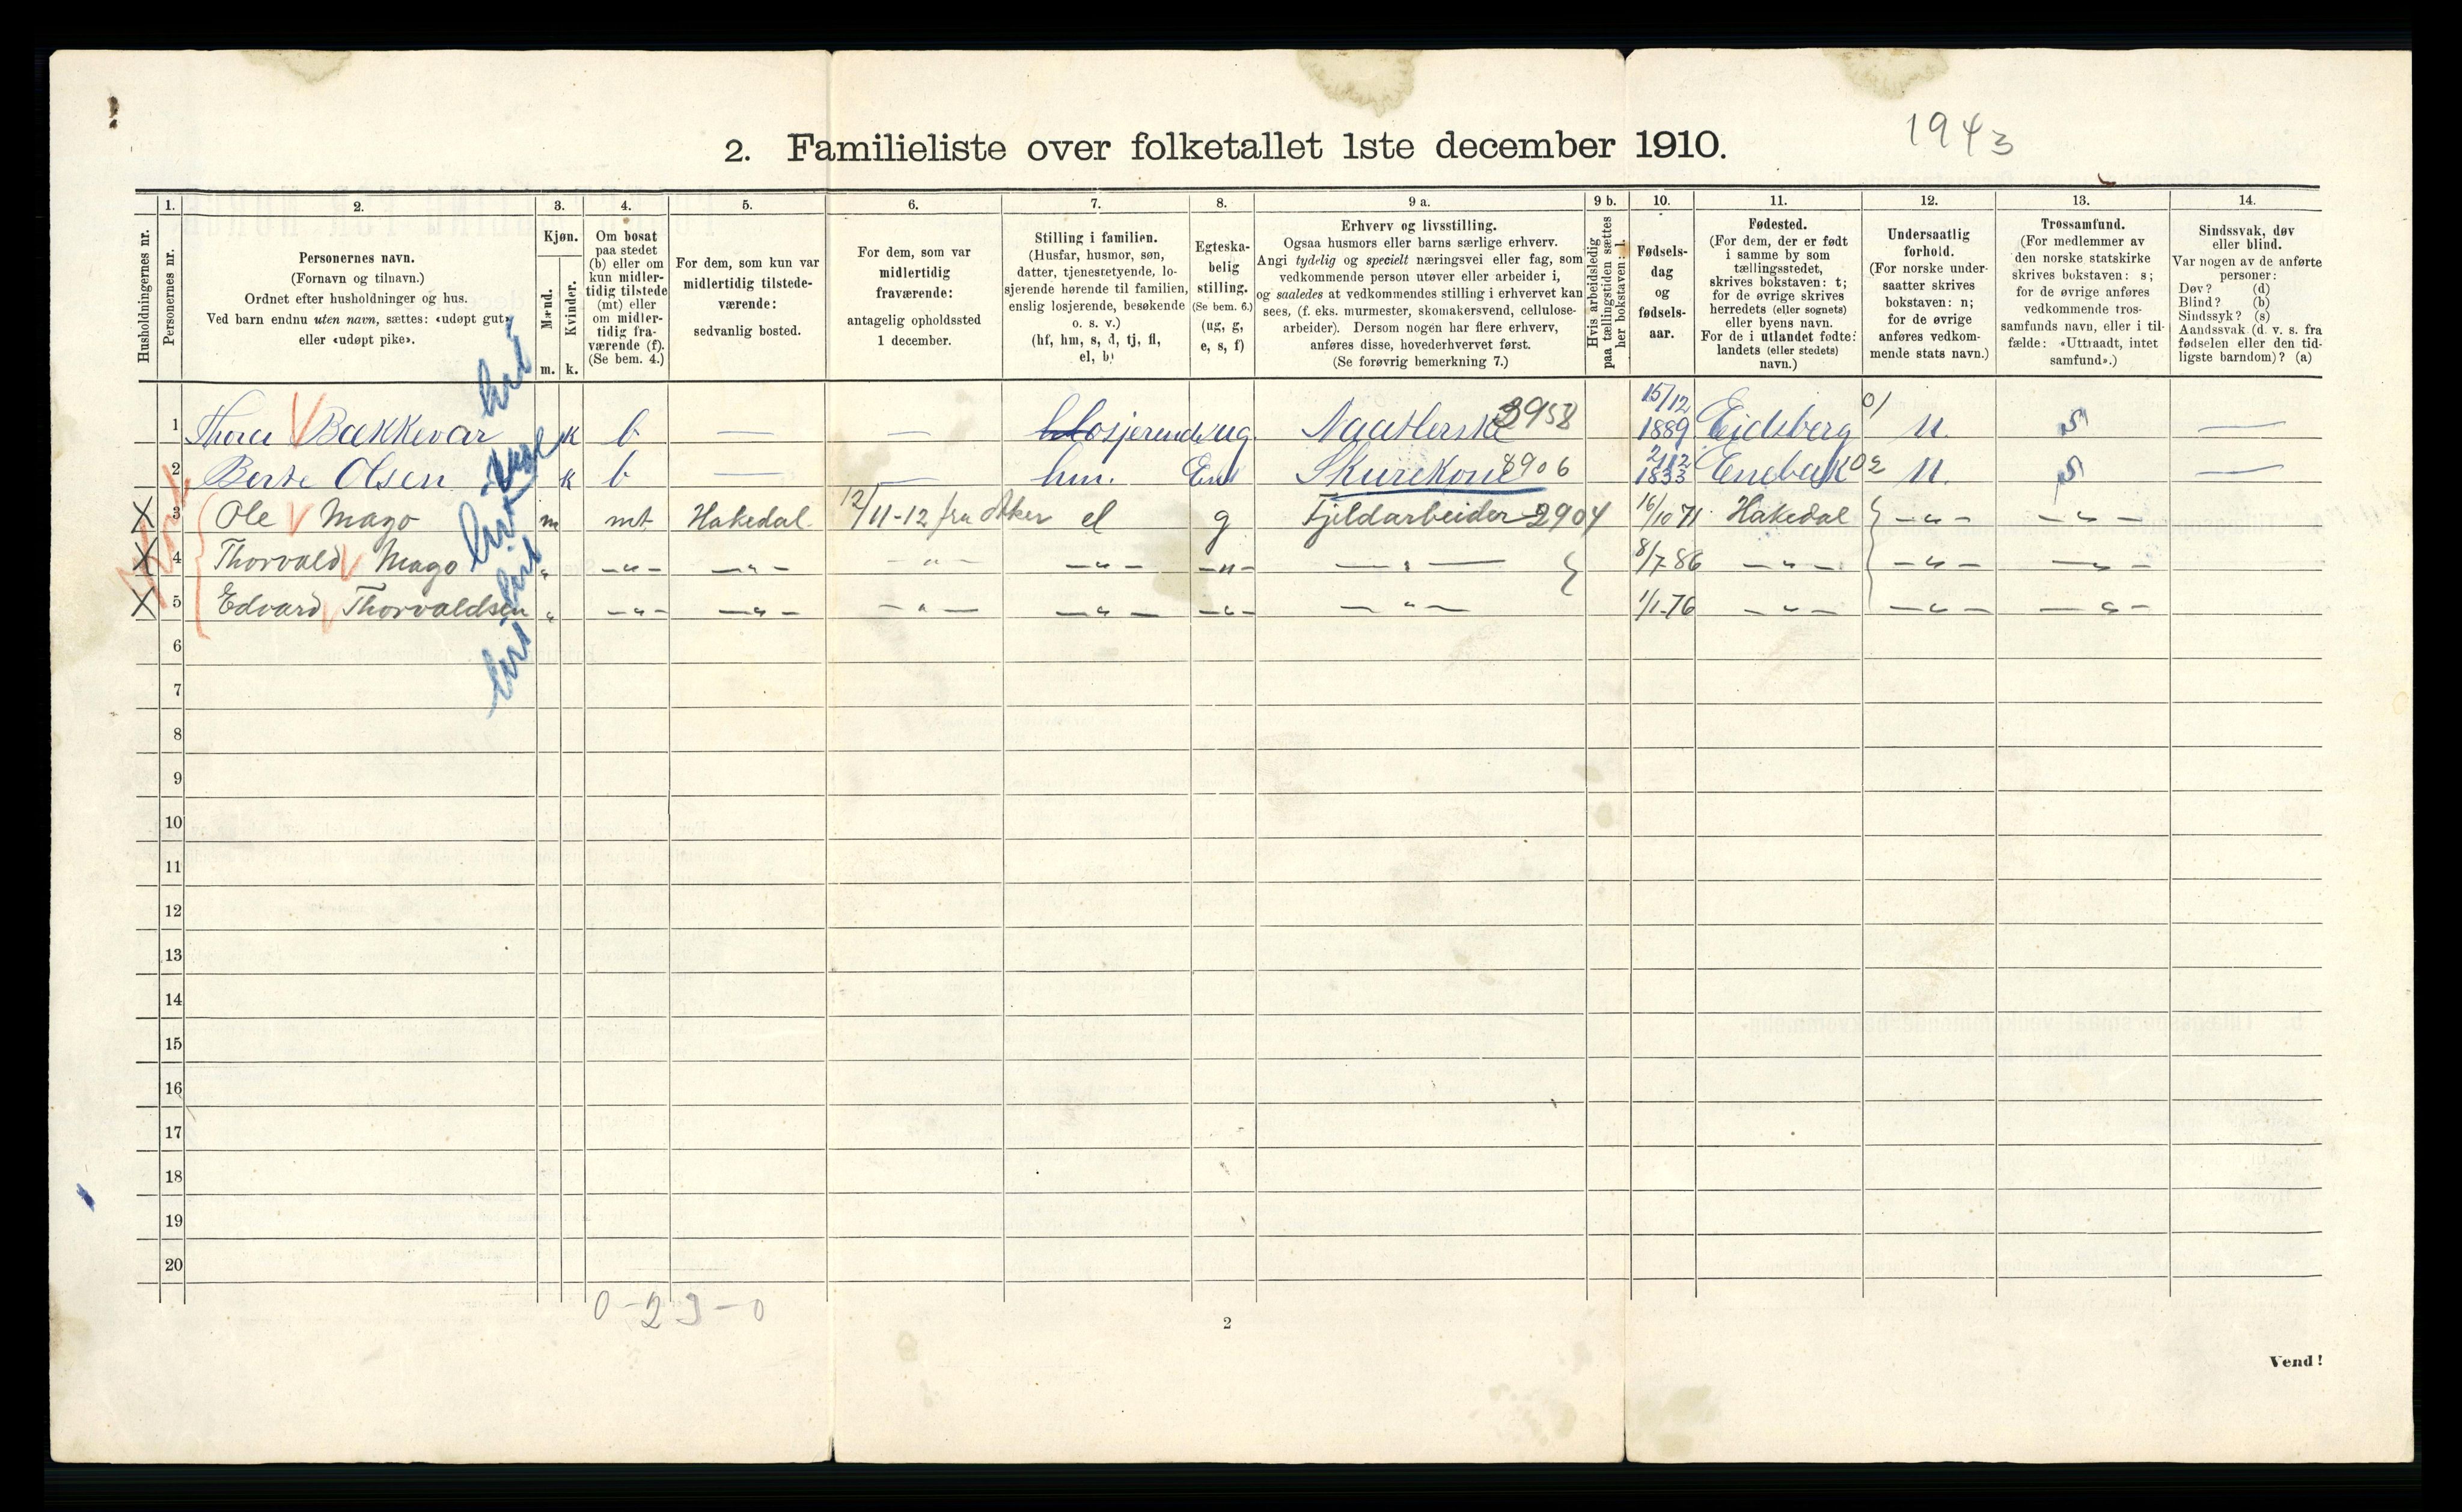 1943
2. Familieliste over folketallet 1ste december 1910.
Husholdningernes nr.
1.
Personernes nr.
2.
Personernes navn.
(Fornavn og tilnavn.)
Ordnet efter husholdninger og hus.
Ved barn endnu uten navn, sættes: «udøpt gut»
eller «udøpt pike».
3.
Kjøn.
Mænd.
Kvinder.
m.
k.
4.
Om bosat
paa stedet
(b) eller om
kun midler-
tidig tilstede
(mt) eller
om midler-
tidig fra-
værende (f).
(Se bem. 4.)
5.
For dem, som kun var
midlertidig tilstede-
værende:
sedvanlig bosted.
6.
For dem, som var
midlertidig
fraværende:
antagelig opholdssted
1 december.
7.
Stilling i familien.
(Husfar, husmor, søn,
datter, tjenestetyende, lo-
sjerende hørende til familien,
enslig losjerende, besøkende
o. s. v.)
(hf, hm, s, d, tj, fl,
el, b)
8.
Egteska-
belig
stilling.
(Se bem. 6.)
(ug, g,
e, s, f)
9 a.
Erhverv og livsstilling.
Ogsaa husmors eller barns særlige erhverv.
Angi tydelig og specielt næringsvei eller fag, som
vedkommende person utøver eller arbeider i,
og saaledes at vedkommendes stilling i erhvervet kan
sees, (f. eks. murmester, skomakersvend, cellulose-
arbeider). Dersom nogen har flere erhverv,
anføres disse, hovederhvervet først.
(Se forøvrig bemerkning 7.)
9 b.
Hvis arbeidsledig
paa tællingstiden sættes
her bokstaven: l.
10.
Fødsels-
dag
og
fødsels-
aar.
11.
Fødested.
(For dem, der er født
i samme by som
tællingsstedet,
skrives bokstaven: t;
for de øvrige skrives
herredets (eller sognets)
eller byens navn.
For de i utlandet fødte:
landets (eller stedets)
navn.)
12.
Undersaatlig
forhold.
(For norske under-
saatter skrives
bokstaven: n;
for de øvrige
anføres vedkom-
mende stats navn.)
13.
Trossamfund.
(For medlemmer av
den norske statskirke
skrives bokstaven: s;
for de øvrige anføres
vedkommende tros-
samfunds navn, eller i til-
fælde: «Uttraadt, intet
samfund».)
14.
Sindssvak, døv
eller blind.
Var nogen av de anførte
personer:
Døv? (d)
Blind? (b)
Sindssyk? (s)
Aandssvak (d. v. s. fra
fødselen eller den tid-
ligste barndom)? (a)
1 Thora Bakkevar k b — — Losjerende ug Naatlerske 3958 15/12 1889 Eidsberg 01 n. s —
2 Berte Olsen k b — — hm. Enk Skurekone 8906 21/12 1833 Enebak 02 n. s —
X 3 Ole Mago m mt Hakedal 12/11-12 fra Aker el g Fjeldarbeider 2904 16/10 71 Hakedal —"— —"—
X 4 Thorvald Mago " —"— —"— —"— —"— —"— —"— 8/7-86 —"— —"— —"—
X 5 Edvard Thorvaldsen " —"— —"— —"— —"— —"— —"— 1/1-76 —"— —"— —"—
6
7
8
9
10
11
12
13
14
15
16
17
18
19
20
0-23-0
2
Vend!